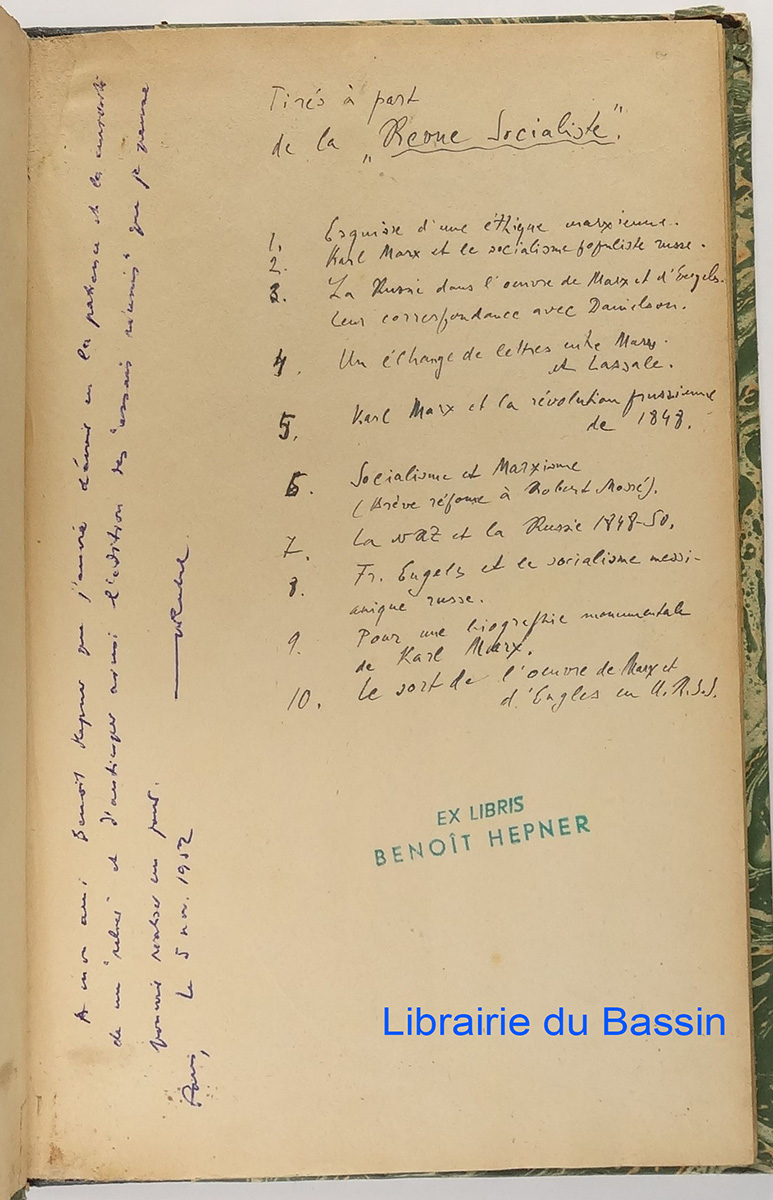 Tirés à part
de la „Revue Socialiste".
1. Esquisse d'une éthique marxienne.
2. Karl Marx et le socialisme populiste russe.
3. La Russie dans l'oeuvre de Marx et d'Engels.
Leur correspondance avec Danielson.
4. Un échange de lettres entre Marx
et Lassale.
5. Karl Marx et la révolution prussienne
de 1848.
6. Socialisme et Marxisme
(Brève réponse à Robert Mossé).
7. La NRZ et la Russie 1848-50.
8. Fr. Engels et le socialisme messi-
anique russe.
9. Pour une biographie monumentale
de Karl Marx.
10. Le sort de l'oeuvre de Marx et
d'Engles en U.R.S.S.
A mon ami Benoît Hepner que j'envie d'avoir eu la patience et la curiosité
de me "relire" et d'anticiper ainsi l'édition des "essais réunis" que je pense
pouvoir réaliser un jour.
Paris, le 5 nov. 1952
MRubel
EX LIBRIS
BENOÎT HEPNER
Librairie du Bassin